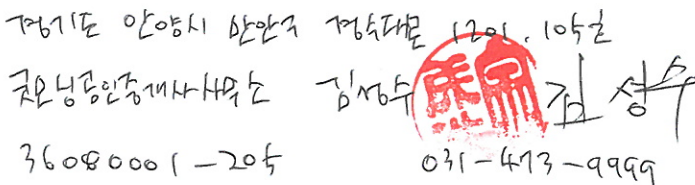 경기도 안양시 만안구 경수대로 1201. 105호
굿모닝공인중개사사무소 김성수 김성수
36080001-205 031-473-9999